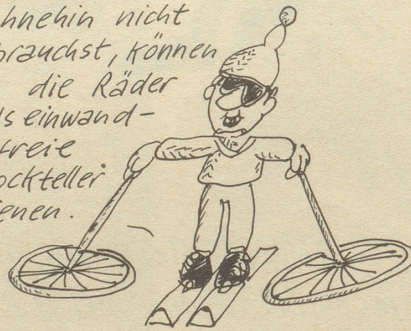 hnehin nicht
brauchst, können
die Räder
ls einwand-
freie
ockteller
enen.